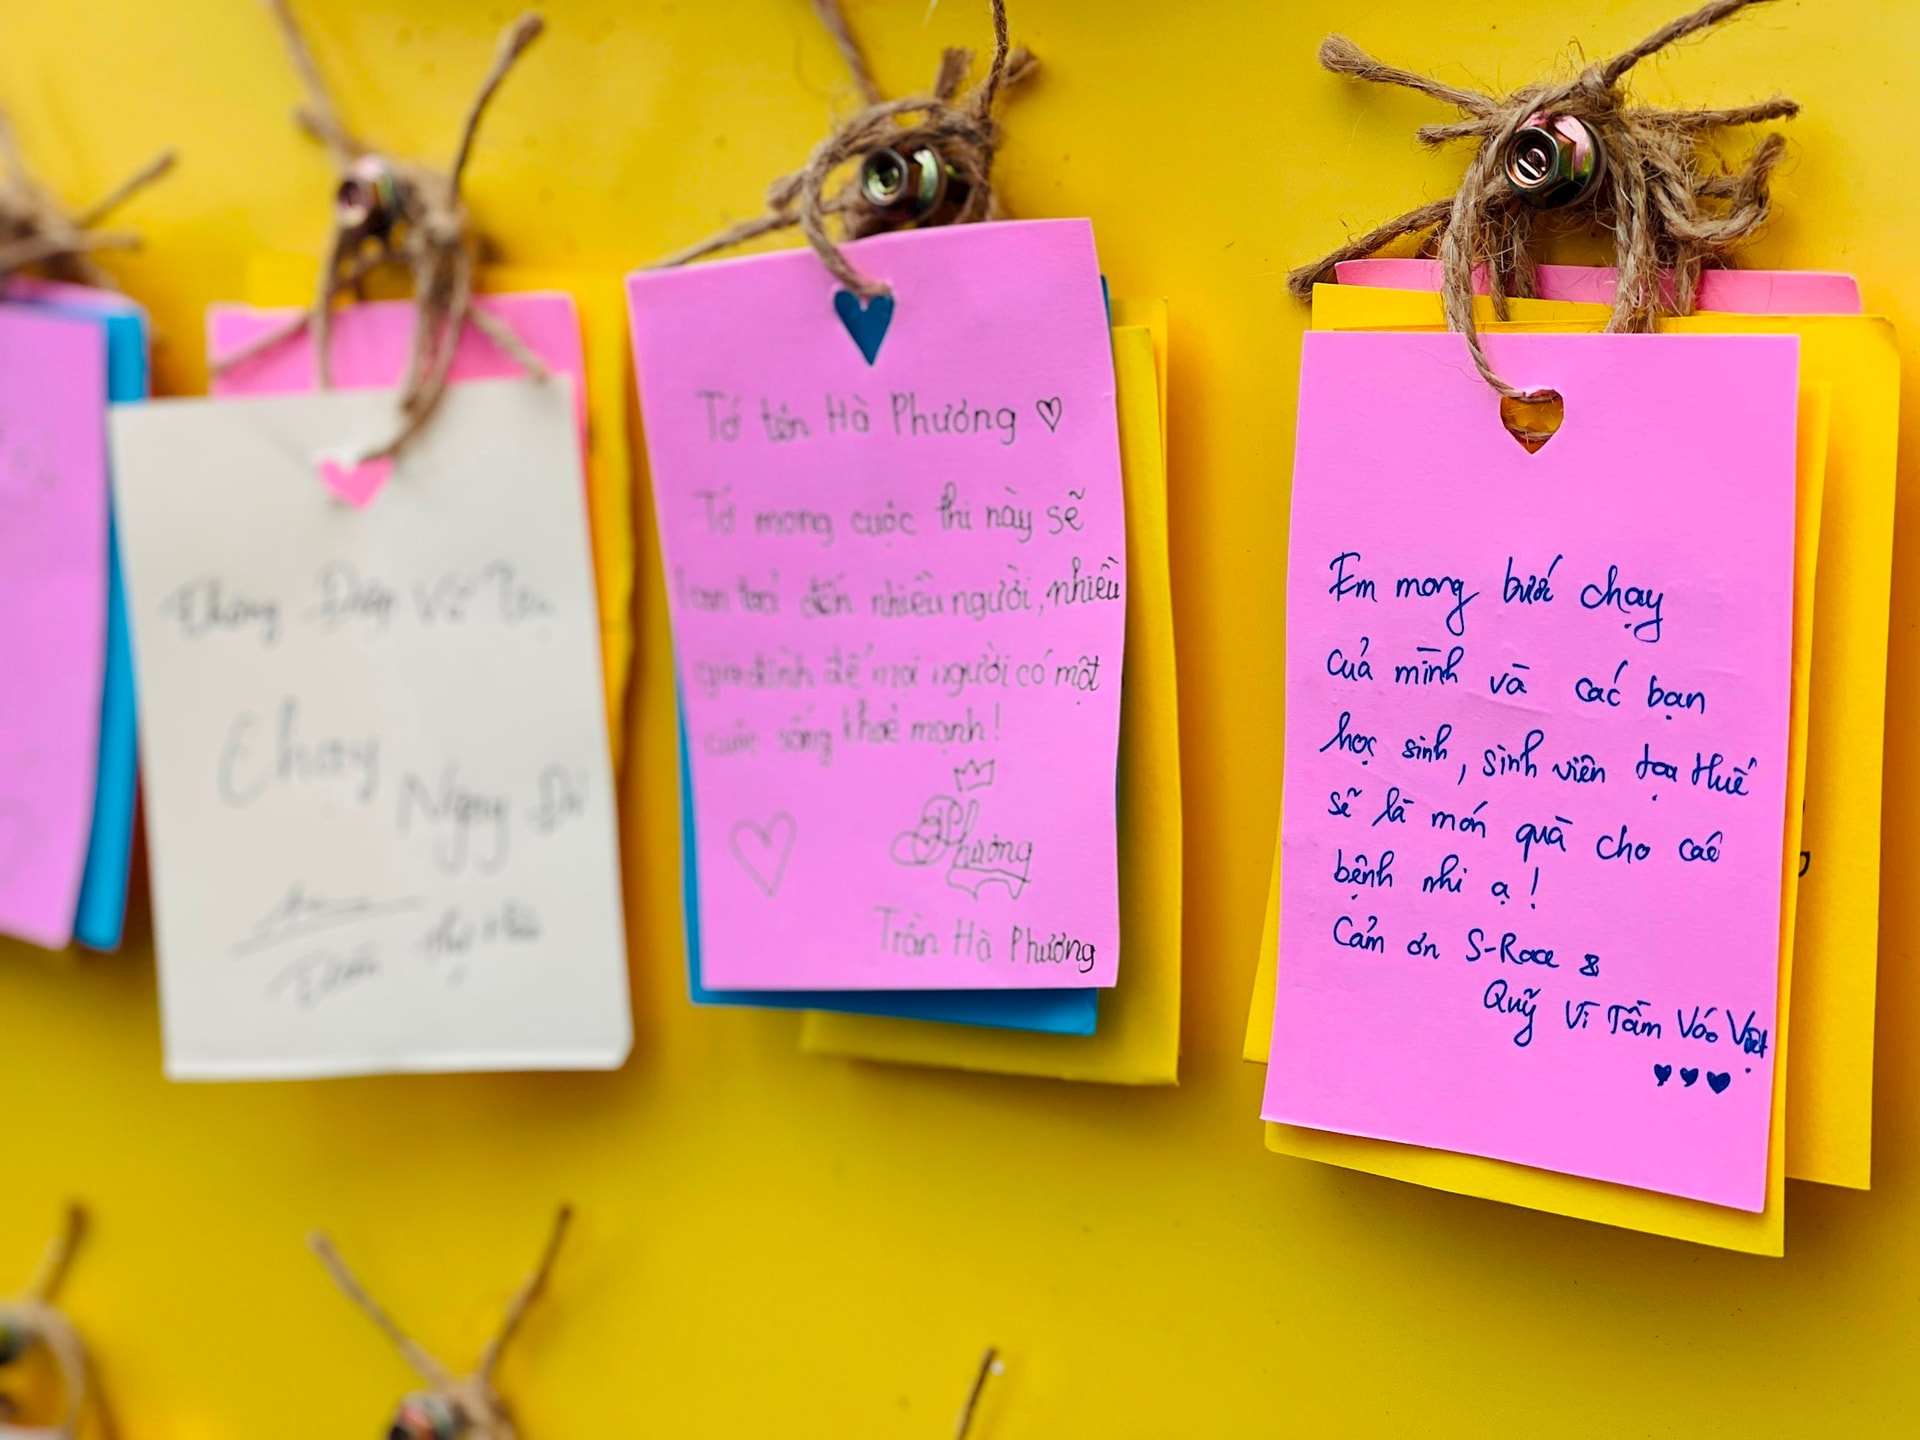 Chạy
Tớ tên Hà Phương ♡
Tớ mong cuộc thi này sẽ
lan toả đến nhiều người, nhiều
gia đình để mọi người có một
cuộc sống khoẻ mạnh!
Phương
Trần Hà Phương
Em mong bước chạy
của mình và các bạn
học sinh, sinh viên tại Huế
sẽ là món quà cho các
bệnh nhi ạ!
Cảm ơn S-Race &
Quỹ Vì Tầm Vóc Việt
♥♥♥